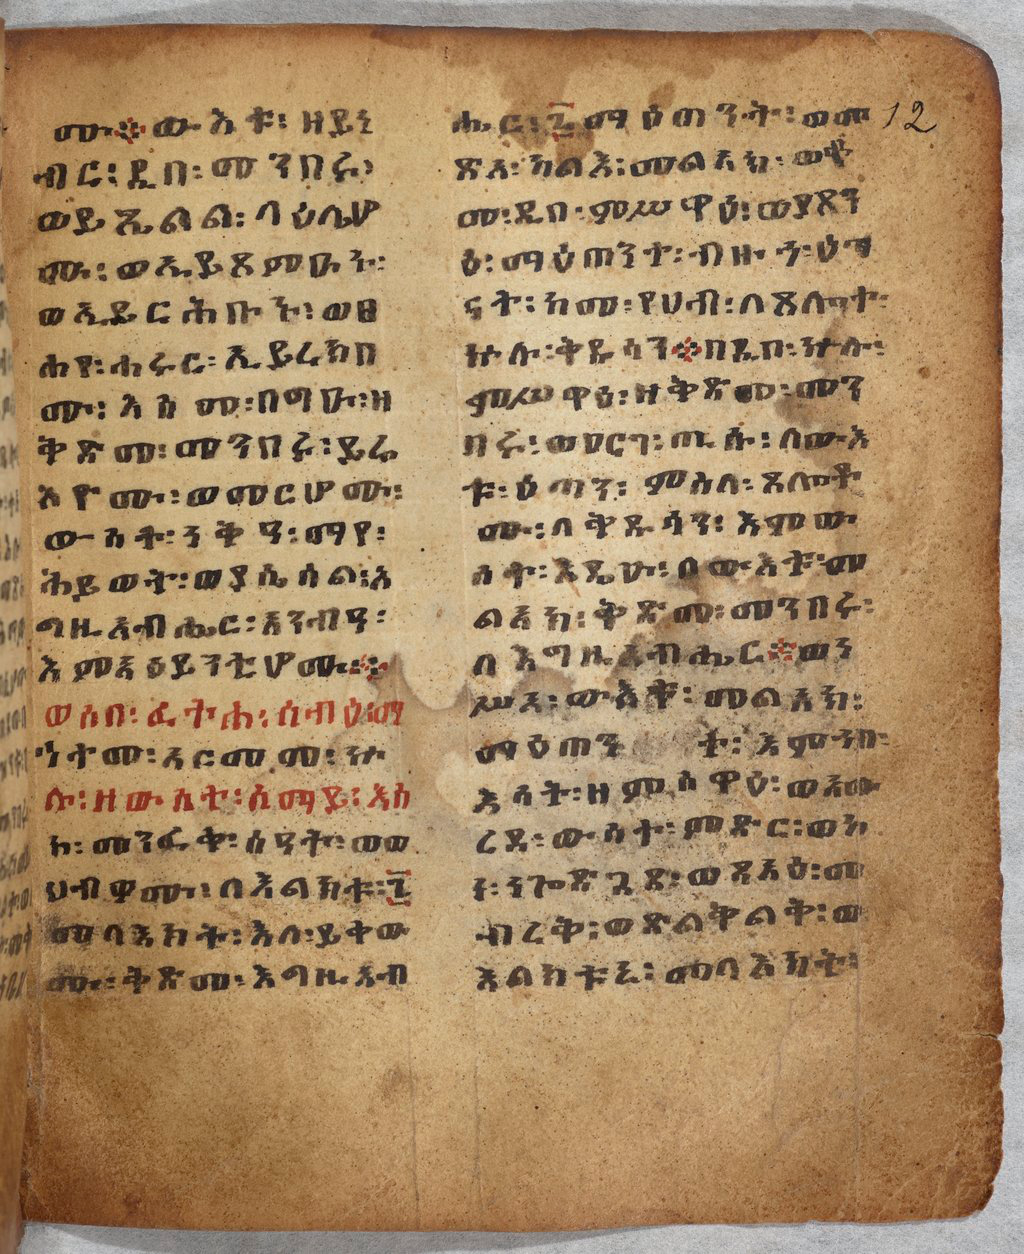 ሙ። ውእቱ፡ ዘይነ
ብር፡ ዲበ፡ መንበሩ፡
ወይጼልል፡ ላዕሌሆ
ሙ፡ ወኢይጸምዑ፡
ወኢይርሕቡ፡ ወፀ
ሐየ፡ ሐሩር፡ ኢይረክበ
ሙ፡ እስመ፡ በግዑ፡ ዘ
ቅድመ፡ መንበሩ፡ ይሬ
እዮሙ፡ ወመርሆሙ፡
ውስተ፡ ነቅዓ፡ ማየ፡
ሕይወት፡ ወያሴስል፡ እ
ግዚአብሔር፡ አንብዓ፡
እምአዕይንቲሆሙ።
ወሶበ፡ ፈትሐ፡ ሳብዕ፡ ማ
ኅተመ፡ አርመመ፡ ኵ
ሉ፡ ዘውስተ፡ ሰማይ፡ እስ
ከ፡ መንፈቀ፡ ሰዓት፡ ወወ
ሀብዎሙ፡ ለእልክቱ፡ ፯
መላእክት፡ እለ፡ ይቀው
ሙ፡ ቅድመ፡ እግዚአብ
ሔር፡ ፯ ማዕጠንት፡ ወመ
ጽአ፡ ካልእ፡ መልአክ፡ ወቆ
መ፡ ዲበ፡ ምሥዋዕ፡ ወያጸን
ዕ፡ ማዕጠንተ፡ ብዙኅ፡ ዕጣ
ናት፡ ከመ፡ የሀብ፡ ለጸሎተ፡
ኵሉ፡ ቅዱሳን። በዲበ፡ ኵሉ፡
ምሥዋዕ፡ ዘቅድመ፡ መን
በሩ፡ ወዐርገ፡ ጢሱ፡ ለውእ
ቱ፡ ዕጣን፡ ምስለ፡ ጸሎቶ
ሙ፡ ለቅዱሳን፡ እምው
ስተ፡ እዴሁ፡ ለውእቱ፡ መ
ልአክ፡ ቅድመ፡ መንበሩ፡
ለእግዚአብሔር። ወን
ሥአ፡ ውእቱ፡ መልአክ፡
ማዕጠንተ፡ እምንበ፡
እሳት፡ ዘምሥዋዕ፡ ወአው
ረደ፡ ውስተ፡ ምድር፡ ወኮ
ነ፡ ነጐድጓድ፡ ወደአዕ፡ መ
ብረቅ፡ ወድልቅልቅ፡ ወ
እልክቱ፡ ፯፡ መላእክት፡
12